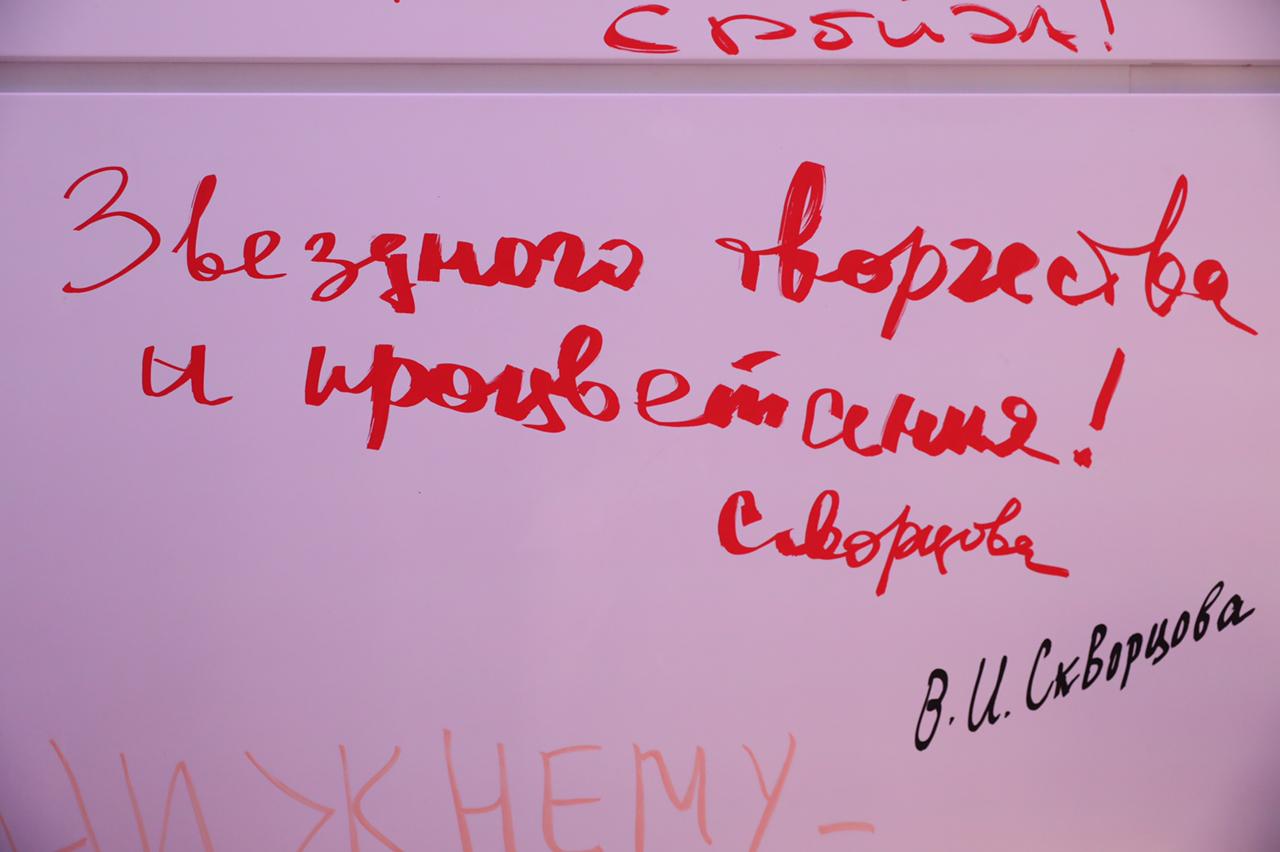 Звездного творчества
и процветания!
Скворцова
В.И.Скворцова
НИЖНЕМУ-